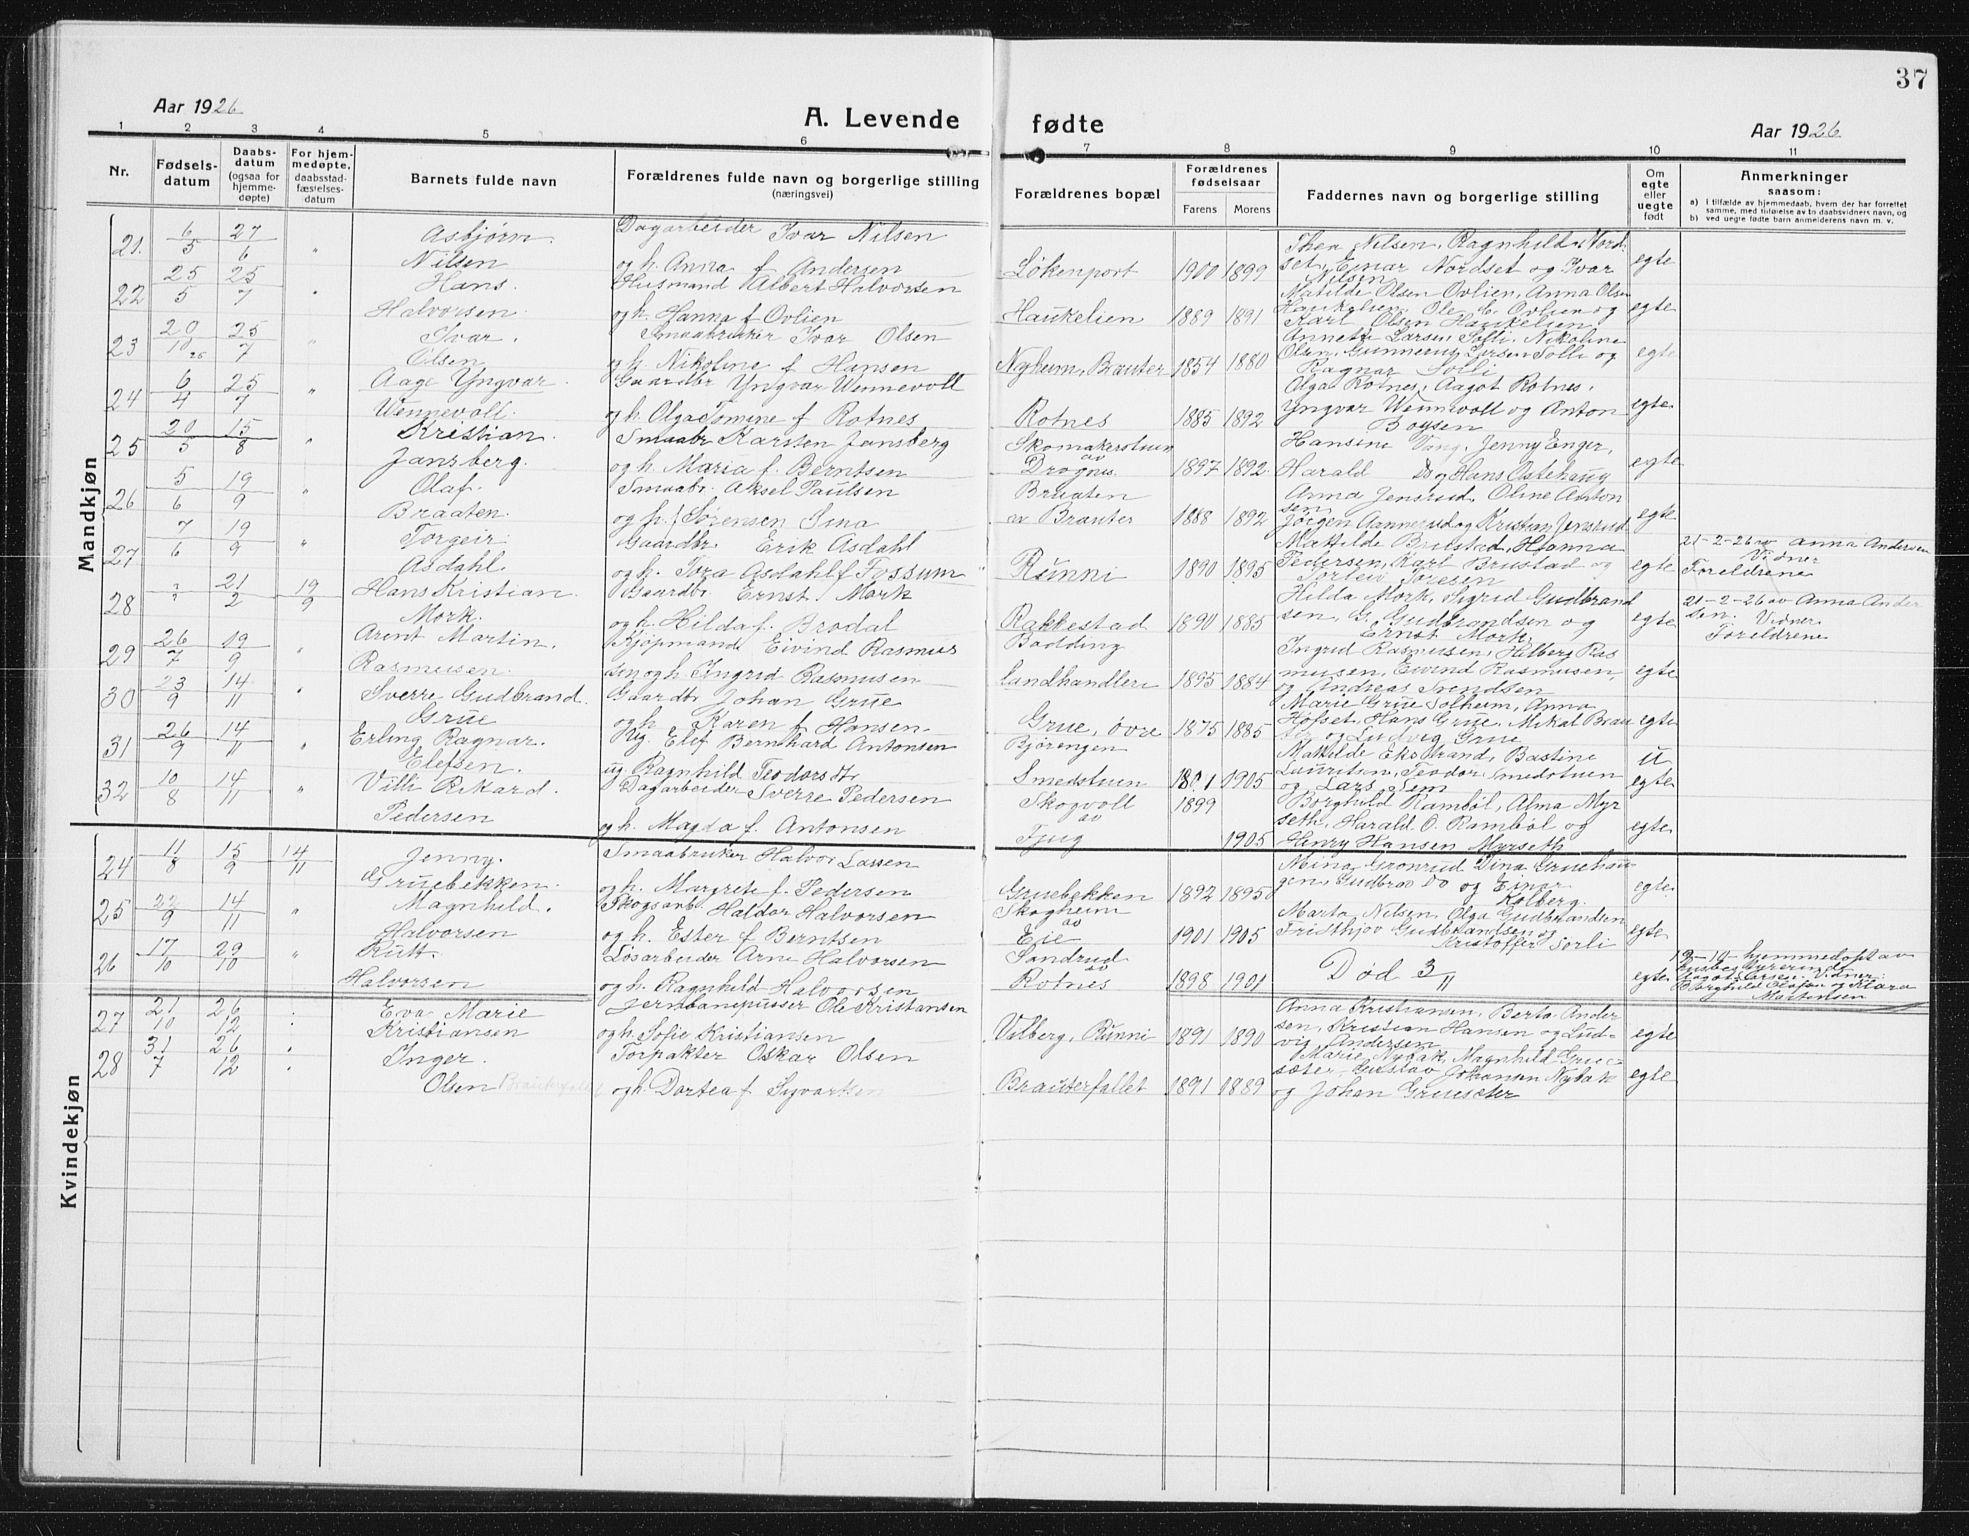 37
Aar 1926
A. Levende fødte
Aar 1926
1 2 3 4 5 6 7 8 9 10 11
Nr.
Fødsels-
datum
Daabs-
datum
(ogsaa for
hjemme-
døpte)
For hjem-
medøpte,
daabsstad-
fæstelses-
datum
Barnets fulde navn
Forældrenes fulde navn og borgerlige stilling
(næringsvei)
Forældrenes bopæl
Forældrenes
fødselsaar
Farens Morens
Faddernes navn og borgerlige stilling
Om
egte
eller
uegte
født
Anmerkninger
saasom:
a) i tilfælde av hjemmedaab, hvem der har forrettet
samme, med tilføielse av to daabsvidners navn, og
b) ved uegte fødte barn anmelderens navn m. v.
Mandkjøn
21. 6/5 27/6 " Asbjørn. Dagarbeider Ivar Nilsen Thea Nilsen, Ragnhild Nord
Nilsen og h. Anna f Andersen Løkenport 1900 1899 set, Einar Nordset og Ivar egte
Nilsen
22 25/5 25/7 " Hans. Husmand Albert Halvorsen Matilde Olsen Ovlien, Anna Olsen
Halvorsen og h. Hanna f Ovlien Haukelien 1889 1891 Haukelien, Ole C. Ovlien og egte
Karl Olsen Haukelien
23 20/10 25 25/7 " Ivar. Smaabruker Ivar Olsen Annette Larsen Solli, Nikoline
Olsen og h. Nikoline f Hansen Nyheim, Brauter 1854 1880 Olsen, Gunnerius Larsen Solli og egte
Ragnar Solli
24 6/4 25/7 " Aage Yngvar Gaardbr Yngvar Wennevoll Olga Rotnes, Aagot Rotnes.
Wennevoll. og h. Olga Tomine f Rotnes Rotnes 1885 1892 Yngvar Wennevoll og Anton egte
Boysen
25 20/5 15/8 " Kristian. Smaabr Karsten Jansberg Skomakerstuen Hansine Vang, Jenny Enger,
Jansberg. og h. Maria f. Berntsen av Drognes 1897 1892 Harald Do og Hans Østehaug egte
26 5/6 19/9 " Olaf. Smaabr. Aksel Paulsen Braaten Anna Jensrud, Oline Anton
Braaten. og h. f Sørensen Lina av Brauter 1888 1892 sen Jørgen Aannerud og Kristian Jensrud egte
27 7/6 19/9 " Torgeir. Gaardbr Erik Asdahl Mathilde Brustad, Hanna 21-2-26 av Anna Andersen
Asdahl. og h. Tora Asdahl f Fossum Runni 1890 1895 Pedersen, Karl Brustad og egte Vidner
Torleiv Toresen Foreldrene
28 21/2 19/9 Hans Kristian Gaardbr Ernst Mork Hilda Mork, Sigrid Gudbrand 21-2-26 av Anna Ander
Mork. og h. Hilda f. Brodal Rakkestad 1890 1885 sen, G. Gudbrandsen og egte sen. Vidner
Ernst Mork. Foreldrene
29 26/7 19/9 " Arent Martin. Kjøpmand Eivind Rasmus Bodding Ingrid Rasmussen, Helberg Ras
Rasmussen. sen og h Ingrid Rasmussen landhandleri 1895 1884 mussen, Eivind Rasmussen, egte
og Andreas Svendsen
30 23/9 14/11 " Sverre Gudbrand. Gaardbr Johan Grue Marie Grue Solheim, Anna
Grue og h. Karen f Hansen. Grue, øvre 1875 1885 Hofset, Hans Grue, Mikal Brau egte
ter og Ludvig Grue
31 26/9 14/11 " Erling Ragnar. Ug. Elef Bernhard Antonsen Bjørengen Mathilde Ekstrand, Bastine u
Elefsen. ug Ragnhild Teodors dtr Smedstuen 1801 1905 Lauritsen, Teodor Smedstuen egte
og Lars Sem
32 10/8 14/11 " Villi Rikard. Dagarbeider Sverre Pedersen Skogvoll 1899 Borghild Rambøl, Alma Myr
Pedersen og h. Magda f. Antonsen av Fjug 1905 seth, Harald O. Rambøl og egte
Henry Hansen Myrseth
Kvindekjøn
24 11/8 15/9 14/11 Jenny. Smaabruker Halvor Lassen Mina Grønrud, Dina Gruehau
Gruebekken. og h. Margrete f. Pedersen Gruebekken 1892 1895 gen, Gudbrav Do og Einar egte
Kolberg.
25 22/9 14/11 " Magnhild. Skogsarb Haldor Halvorsen Skogheim Marta Nilsen, Olga Gudbrandsen
Halvorsen og h. Ester f Berntsen av Eie 1901 1905 Fristhjov Gudbrandsen og egte
Kristoffer Sørli
26 17/10 29/10 " Rutt. Løsarbeider Arne Halvorsen Sandrud Død 3/11 19-10 hjemmedøpt av
Halvorsen og h. Ragnhild Halvorsen av Rotnes 1898 1901 egte Aagot Larsen. Vidner:
Borghild Olafsen og Klara
Mortensen
27 21/10 26/12 " Eva Marie Jernbanepusser Ole Kristansen Anna Kristiansen, Berta Ander
Kristiansen og h. Sofie Kristiansen Vilberg, Runni 1891 1890 sen, Kristian Hansen og Lud- egte
vig Andersen
28 31/7 26/12 " Inger. Forpakter Oskar Olsen Marie Nybak, Magnhild Grue-
Olsen Brauterfallet og h Dortea f Syvartsen Brauterfallet 1891 1889 sæte, Gustav Johansen Nybak egte
og Johan Gruesæter